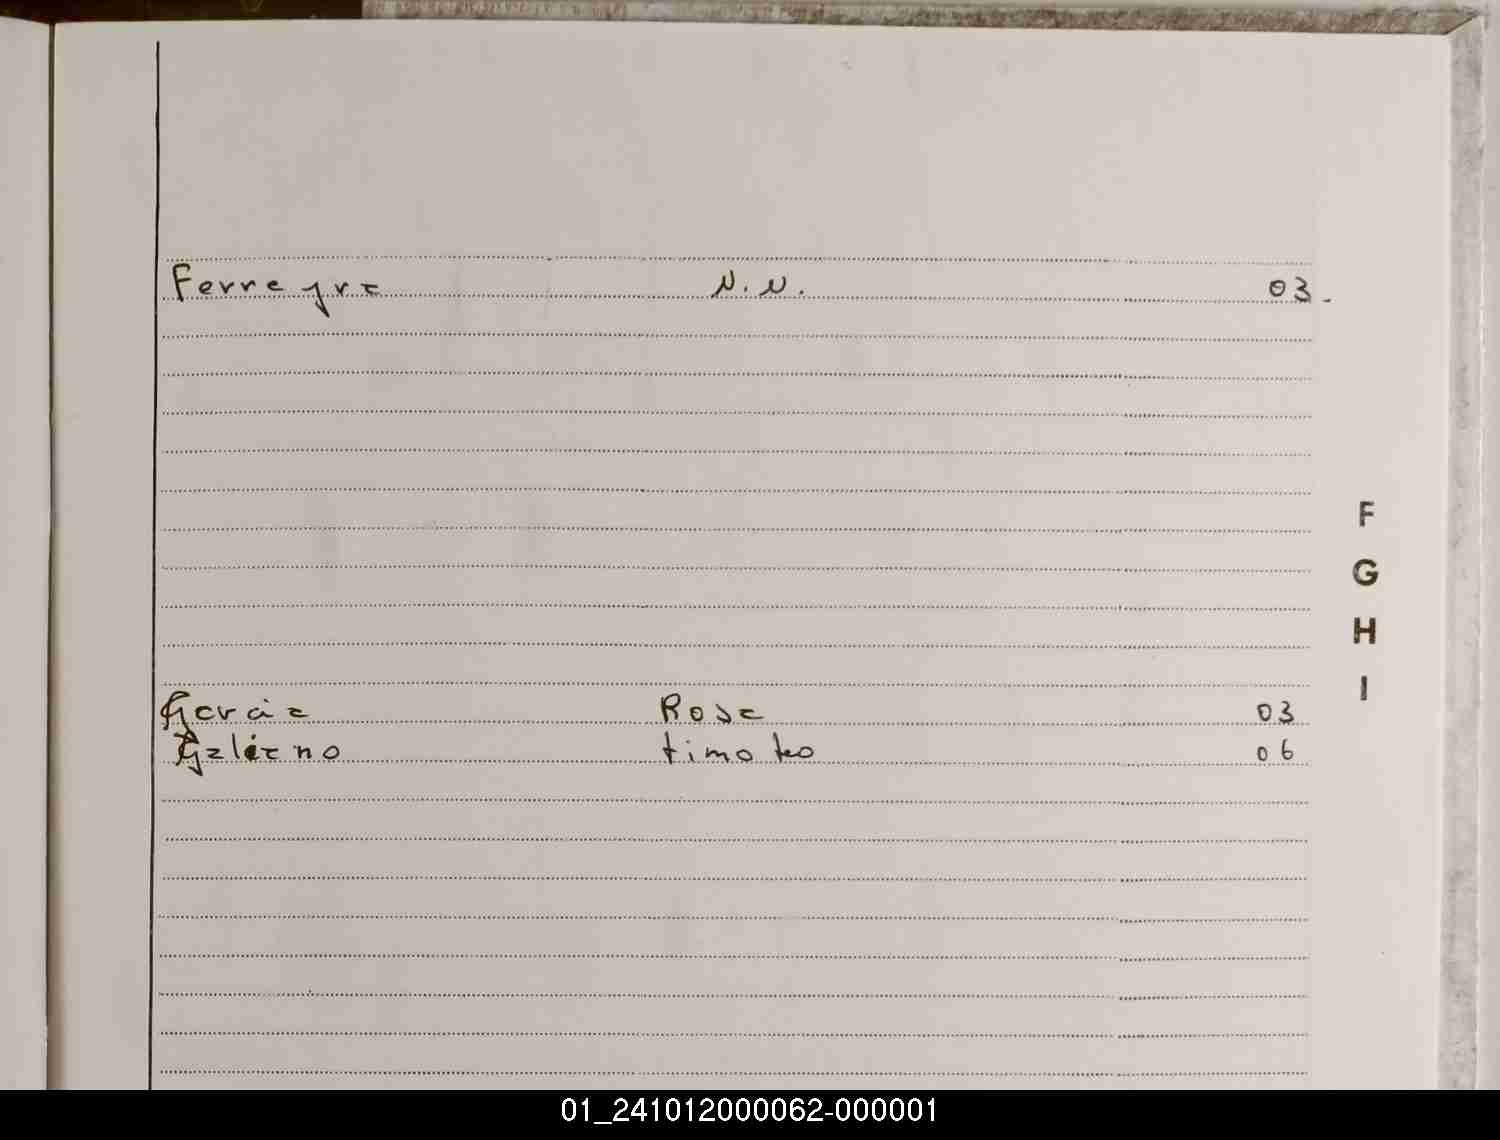 Ferreyra N.N. 03.
F
G
H
I
García Rosa 03
Galeano timoteo 06
01_241012000062-000001